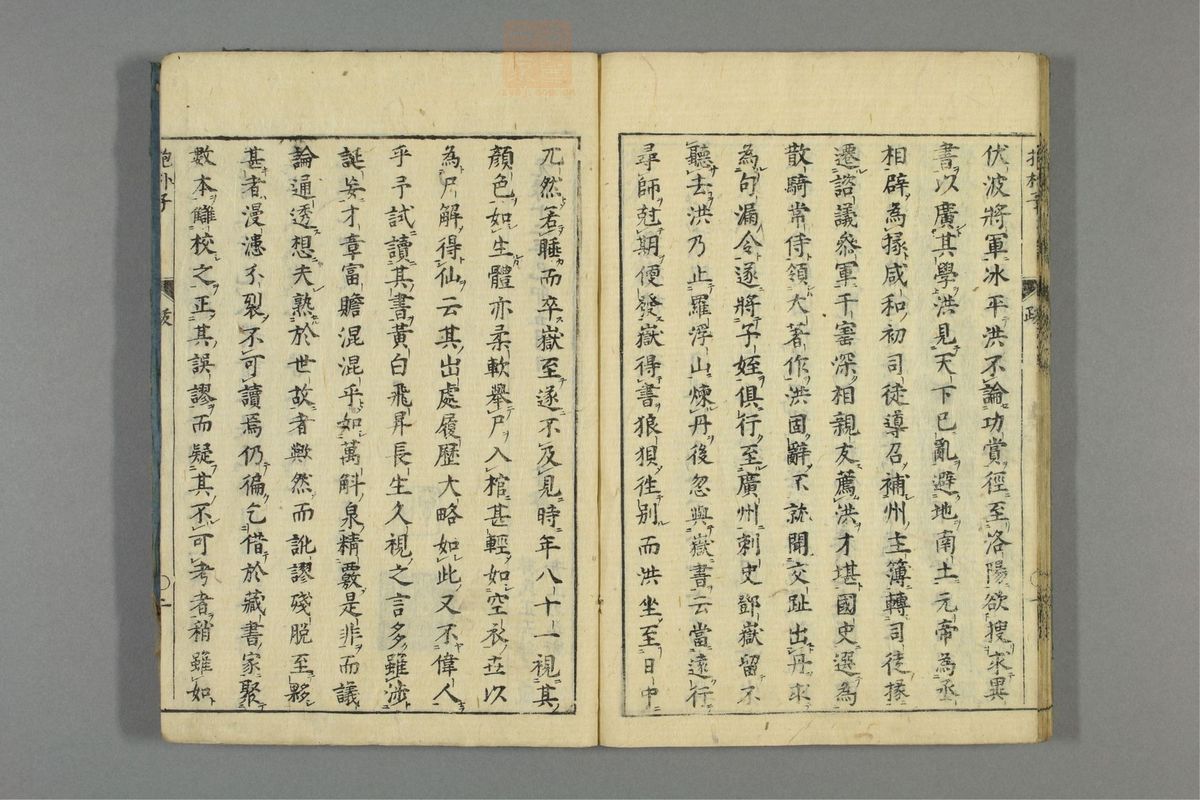 伏波將軍冰平洪不論功賞徑至洛陽欲搜求異
書以廣其學洪見天下已亂避地南土元帝為丞
相辟為掾咸和初司徒導召補州主簿轉司徒掾
遷諮議參軍干寳深相親友薦洪才堪國史選為
散騎常侍領大著作洪固辭不就聞交趾出丹求
為句漏令遂將子姪俱行至廣州刺史鄧嶽留不
聽去洪乃止羅浮山煉丹後忽與嶽書云當遠行
尋師尅期便發嶽得書狼狽徃別而洪坐至日中
兀然若睡而卒嶽至遂不及見時年八十一視其
顏色如生體亦柔軟舉尸入棺甚輕如空衣世以
為尸解得仙云其出處履歷大略如此又不偉人
乎予試讀其書黃白飛昇長生久視之言多雖涉
誕妄才章富贍混混乎如萬斛泉精覈是非而議
論通透想夫熟於世故者歟然而訛謬殘脫至夥
甚者漫漶分裂不可讀焉仍徧乞借於藏書家聚
數本讎校之正其誤謬而疑其不可考者稍雖如
抱朴子